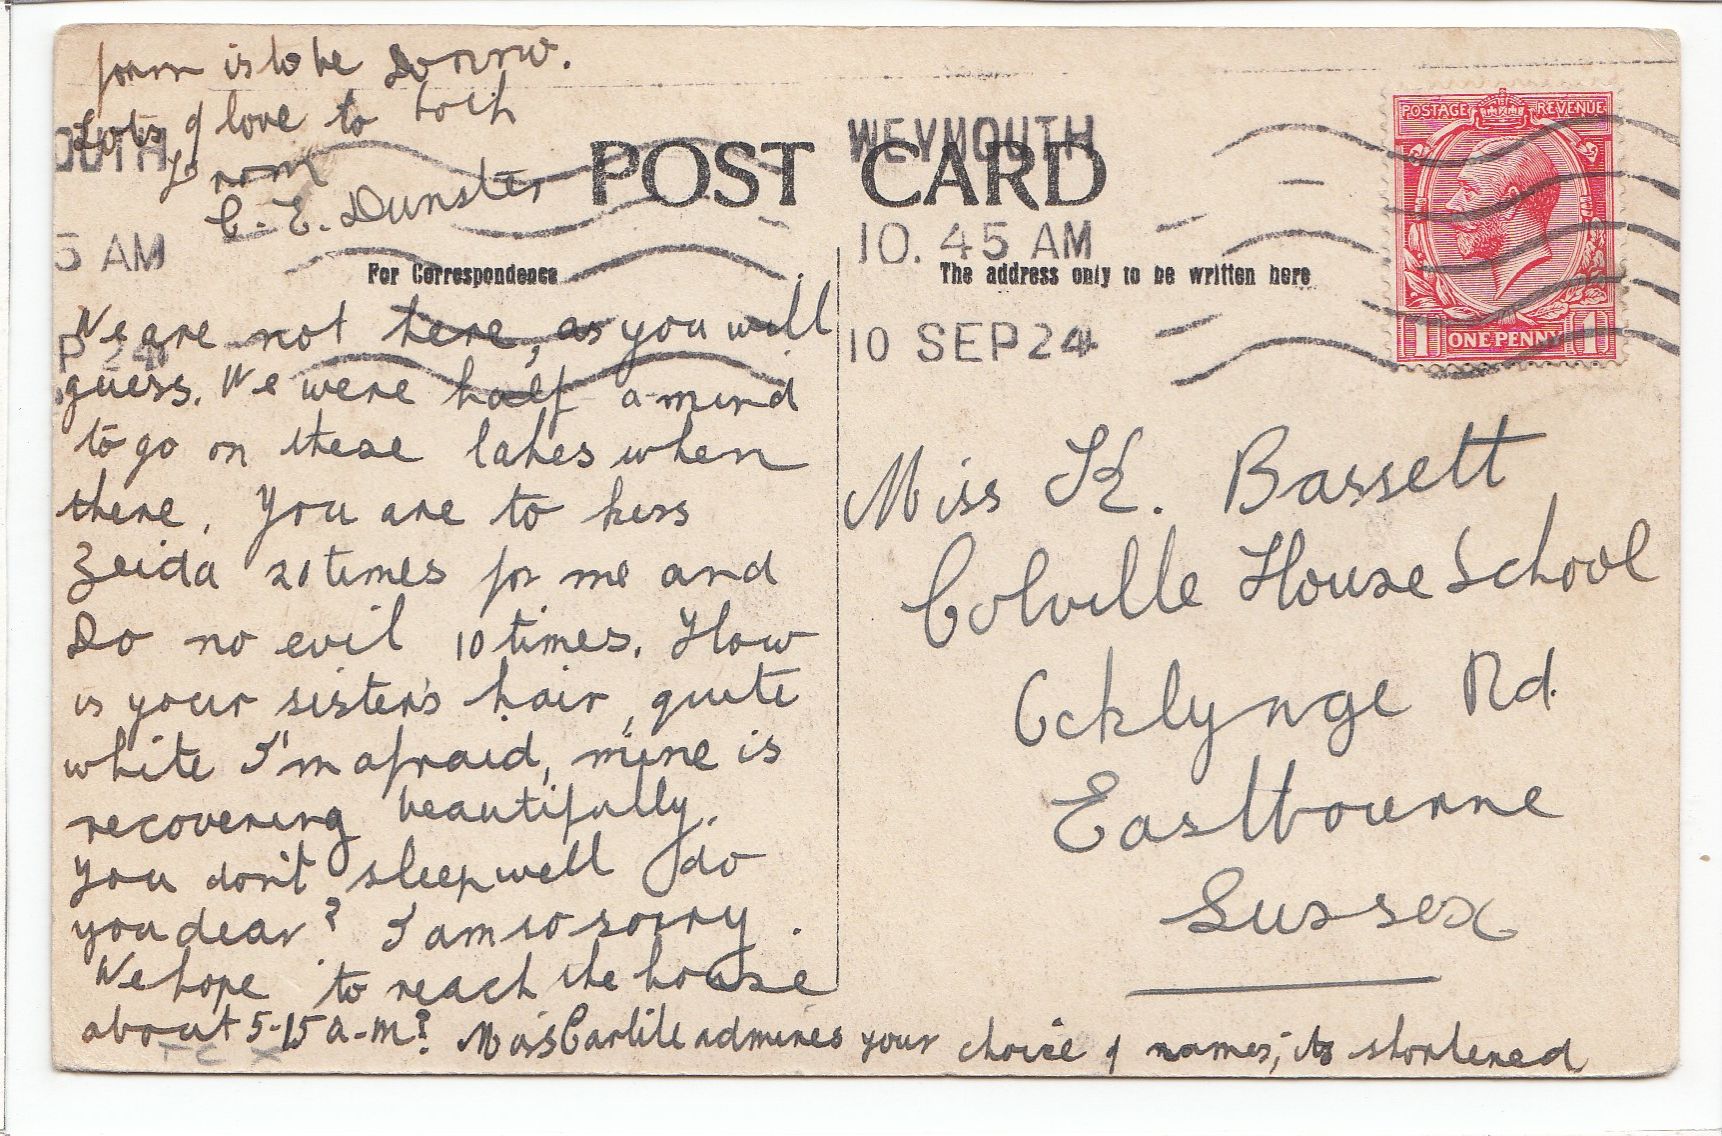 form is to be Dorrw.
Lots of love to both
From
C. E. Dunster
POST CARD
WEYMOUTH
10. 45 AM
10 SEP 24
OUTH
5 AM
P 24
POSTAGE REVENUE
1 ONE PENNY 1
For Correspondence
The address only to be written here
We are not here, as you will
guess. We were half a mind
to go on these lakes when
there. You are to kiss
Zeida 20 times for me and
Do no evil 10 times. How
is your sister's hair, quite
white I'm afraid, mine is
recovering beautifully.
You don't sleep well do
you dear? I am so sorry.
We hope to reach the house
about 5-15 a-m? Miss Carlile admires your choice of names; its shortened
Miss K. Bassett
Colville House School
Ocklynge Rd.
Eastbourne
Sussex